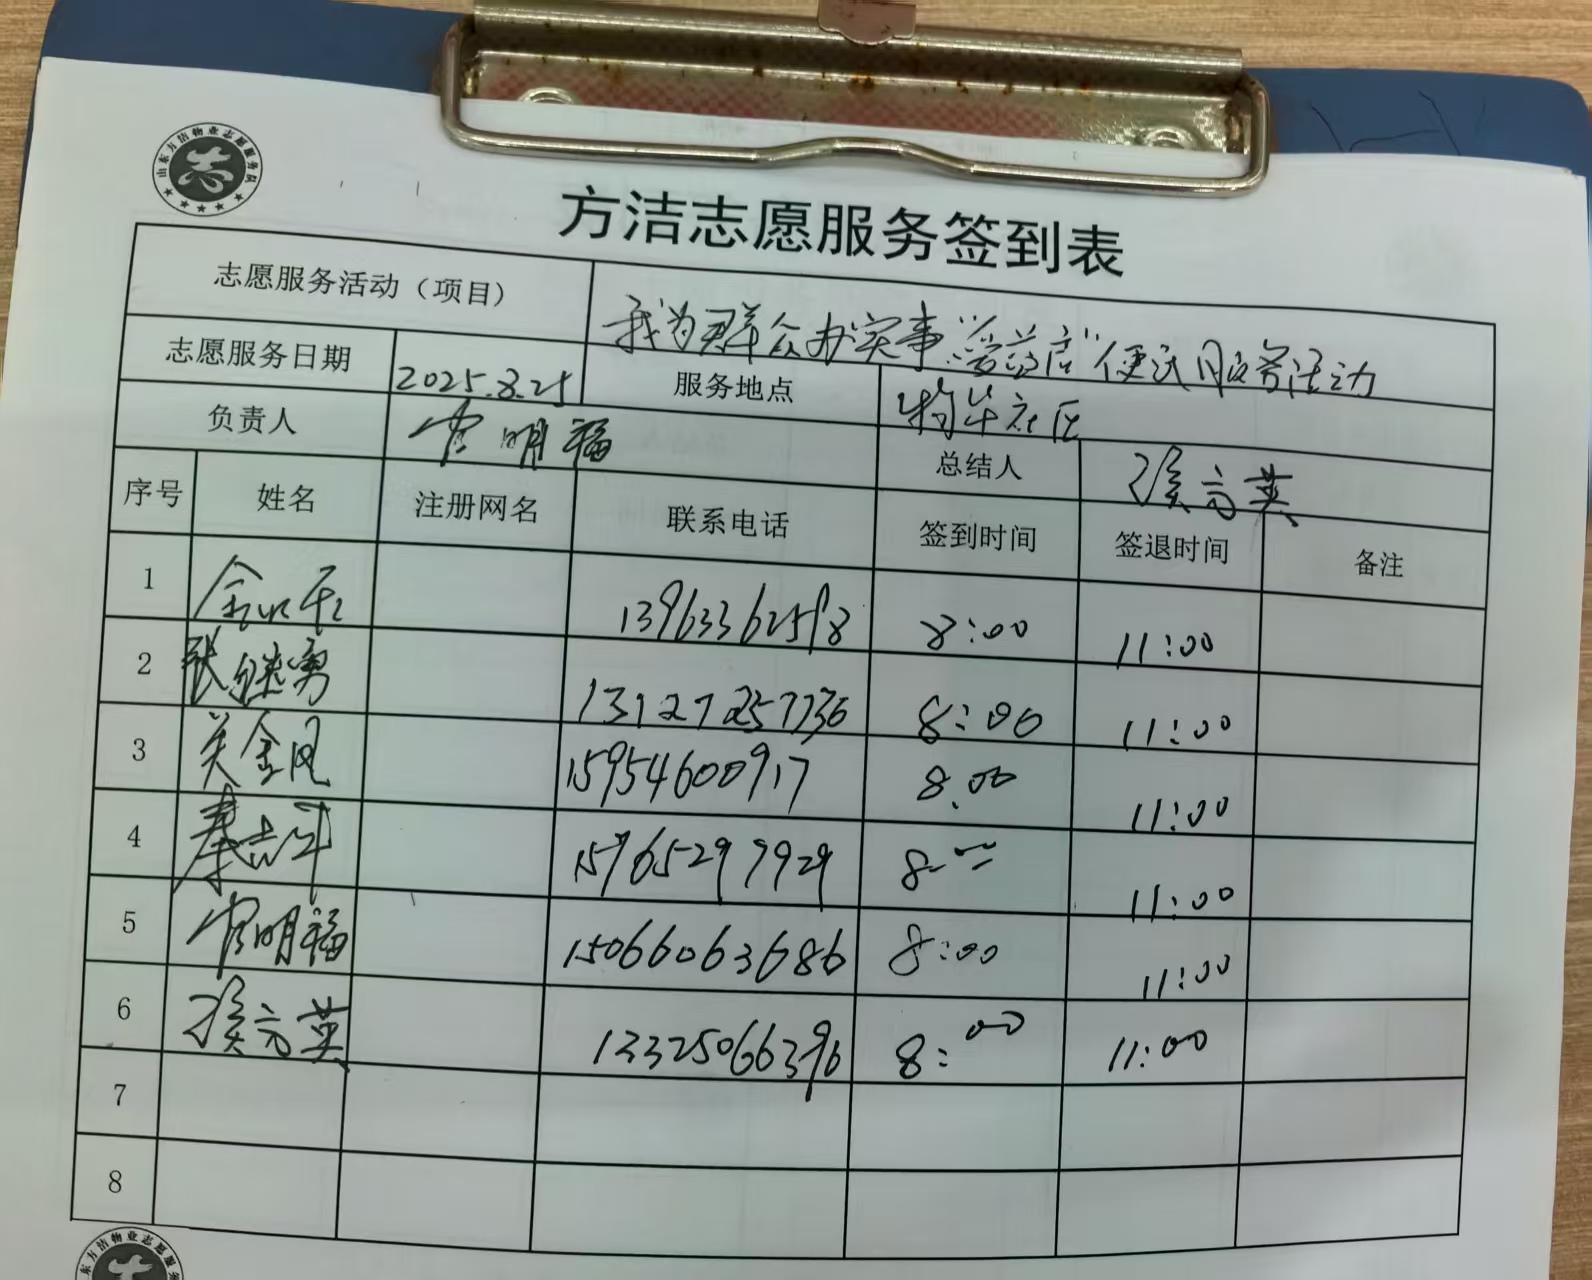 山东方洁物业志愿服务队
方洁志愿服务签到表
志愿服务活动（项目） 我为群众办实事 便民服务活动
志愿服务日期 2025.8.25 服务地点 社区
负责人 官明福 总结人 侯方英
序号 姓名 注册网名 联系电话 签到时间 签退时间 备注
1 13963362598 8:00 11:00
2 张继勇 13127257736 8:00 11:00
3 关金凤 15954600917 8:00 11:00
4 秦志军 15965299929 8:00 11:00
5 官明福 15066063686 8:00 11:00
6 侯方英 13325066396 8:00 11:00
7
8
东方洁物业志愿服务